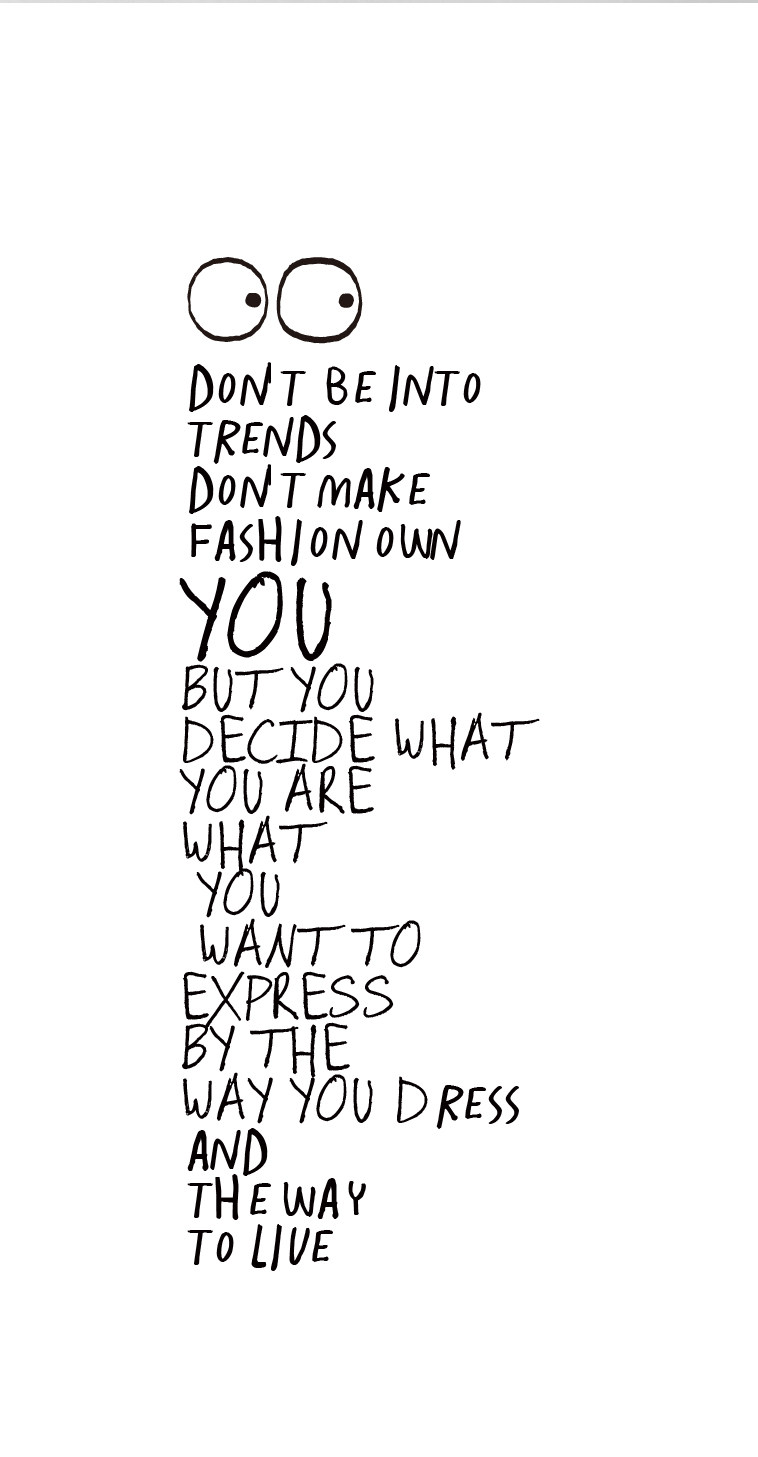 DON'T BE INTO
TRENDS
DON'T MAKE
FASHION OWN
YOU
BUT YOU
DECIDE WHAT
YOU ARE
WHAT
YOU
WANT TO
EXPRESS
BY THE
WAY YOU DRESS
AND
THE WAY
TO LIVE